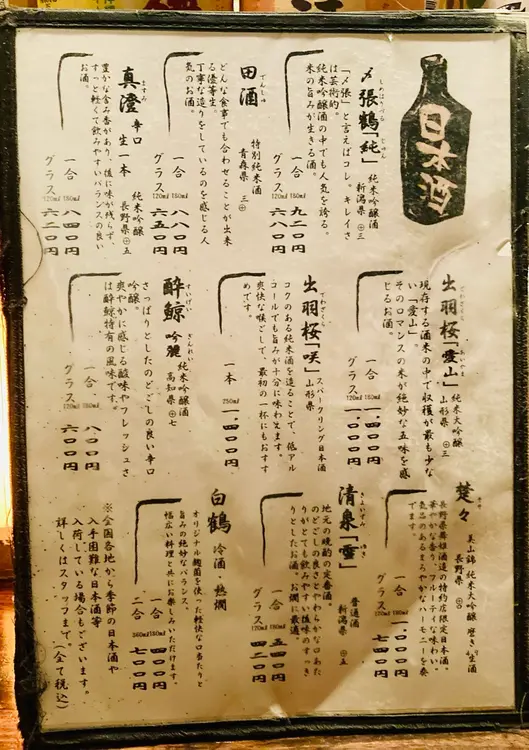 日本酒
〆張鶴「純」 純米吟醸酒 新潟県 ⊕三
しめはりつる じゅん
「〆張」と言えばコレ。キレイさ
は芸術的。
純米吟醸酒の中でも人気を誇る。
米の旨みが生きる酒。
一合 180㎖ 九二〇円
グラス 120㎖ 六八〇円
田酒 特別純米酒 青森県 ⊕三
でんしゅ
どんな食事でも合わせることが出来
る優等生。
丁寧な造りをしているのを感じる人
気のお酒。
一合 180㎖ 八八〇円
グラス 120㎖ 六五〇円
真澄 辛口 生一本 純米吟醸 長野県 ⊕五
ますみ
豊かな含み香があり、後に味が残らず、
すっと軽くて飲みやすいバランスの良い
お酒。
一合 180㎖ 八四〇円
グラス 120㎖ 六二〇円
出羽桜「愛山」 純米大吟醸 山形県 ⊕三
でわざくら あいやま
現存する酒米の中で収穫が最も少な
い「愛山」。
そのロマンスの米が絶妙な五味を感
じるお酒。
一合 180㎖ 一、四〇〇円
グラス 120㎖ 一、〇〇〇円
出羽桜「咲」 スパークリング日本酒 山形県
でわざくら
コクのある純米酒を造ることで、低アル
コールでも旨みが十分に味わえます。
爽快な喉ごしで、最初の一杯にもおすす
めです。
一本 250㎖ 一、四〇〇円
酔鯨 吟麗 純米吟醸 高知県 ⊕七
すいげい ぎんれい
さっぱりとしたのどごしの良い辛口
吟醸。
爽やかに感じる酸味やフレッシュさ
は酔鯨特有の風味です。
一合 180㎖ 八〇〇円
グラス 120㎖ 六〇〇円
楚々 美山錦 純米大吟醸 磨き 生酒 長野県
そそ
長野県舞姫酒造の特約店限定日本酒。
華やかな香り、フルーティな味わい。
気品のあるまろやかなハーモニーを奏
でます。
一合
グラス 七四〇円
清泉「雪」 普通酒 新潟県 ⊕五
きよいずみ ゆき
地元の晩酌の定番酒。
のどごしの良さとやわらかな口あた
りがとても飲みやすい後味のすっき
りとしたお酒。お燗に最適。
一合 180㎖ 五四〇円
グラス 120㎖ 四〇〇円
白鶴 冷酒・熱燗
オリジナル麹菌を使った軽快な口当たりと
旨みの絶妙なバランス。
幅広い料理と共にお楽しみいただけます。
一合 180㎖ 四〇〇円
二合 360㎖ 七〇〇円
※全国各地から季節の日本酒や
入手困難な日本酒等
入荷している場合もございます。
詳しくはスタッフまで(全て税込)